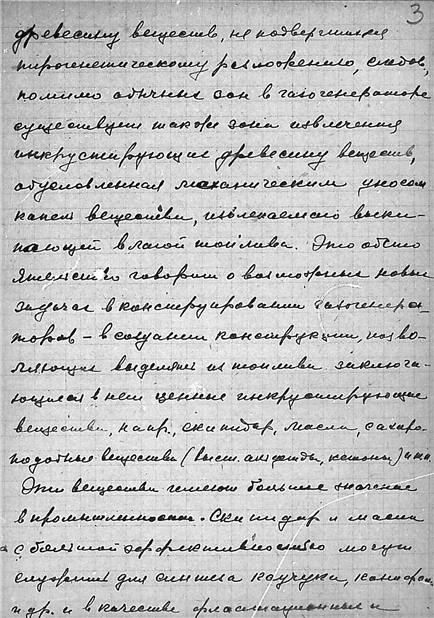 3
древесину веществ, не подвергшихся
пирогенетическому разложению, следов.,
помимо обычных зон в газогенераторе
существует также зона извлечения
инкрустирующих древесину веществ,
обусловленная механическим уносом
капель вещества, извлекаемого выки-
пающей влагой топлива. Это обсто
ятельство говорит о возможных новых
задачах в конструировании газогенера-
торов – в создании конструкции, позво-
ляющих выделять из топлива заключа-
ющиеся в нем ценные инкрустирующие
вещества, напр., скипидар, масла, сахаро-
подобные вещества (высш. альдегиды, кетоны) и т.п.
Эти вещества имеют большое значение
в промышленности. Скипидар и масла
с большой эффективностью могут
служить для синтеза каучука, камфары
и др. и в качестве флотационных и